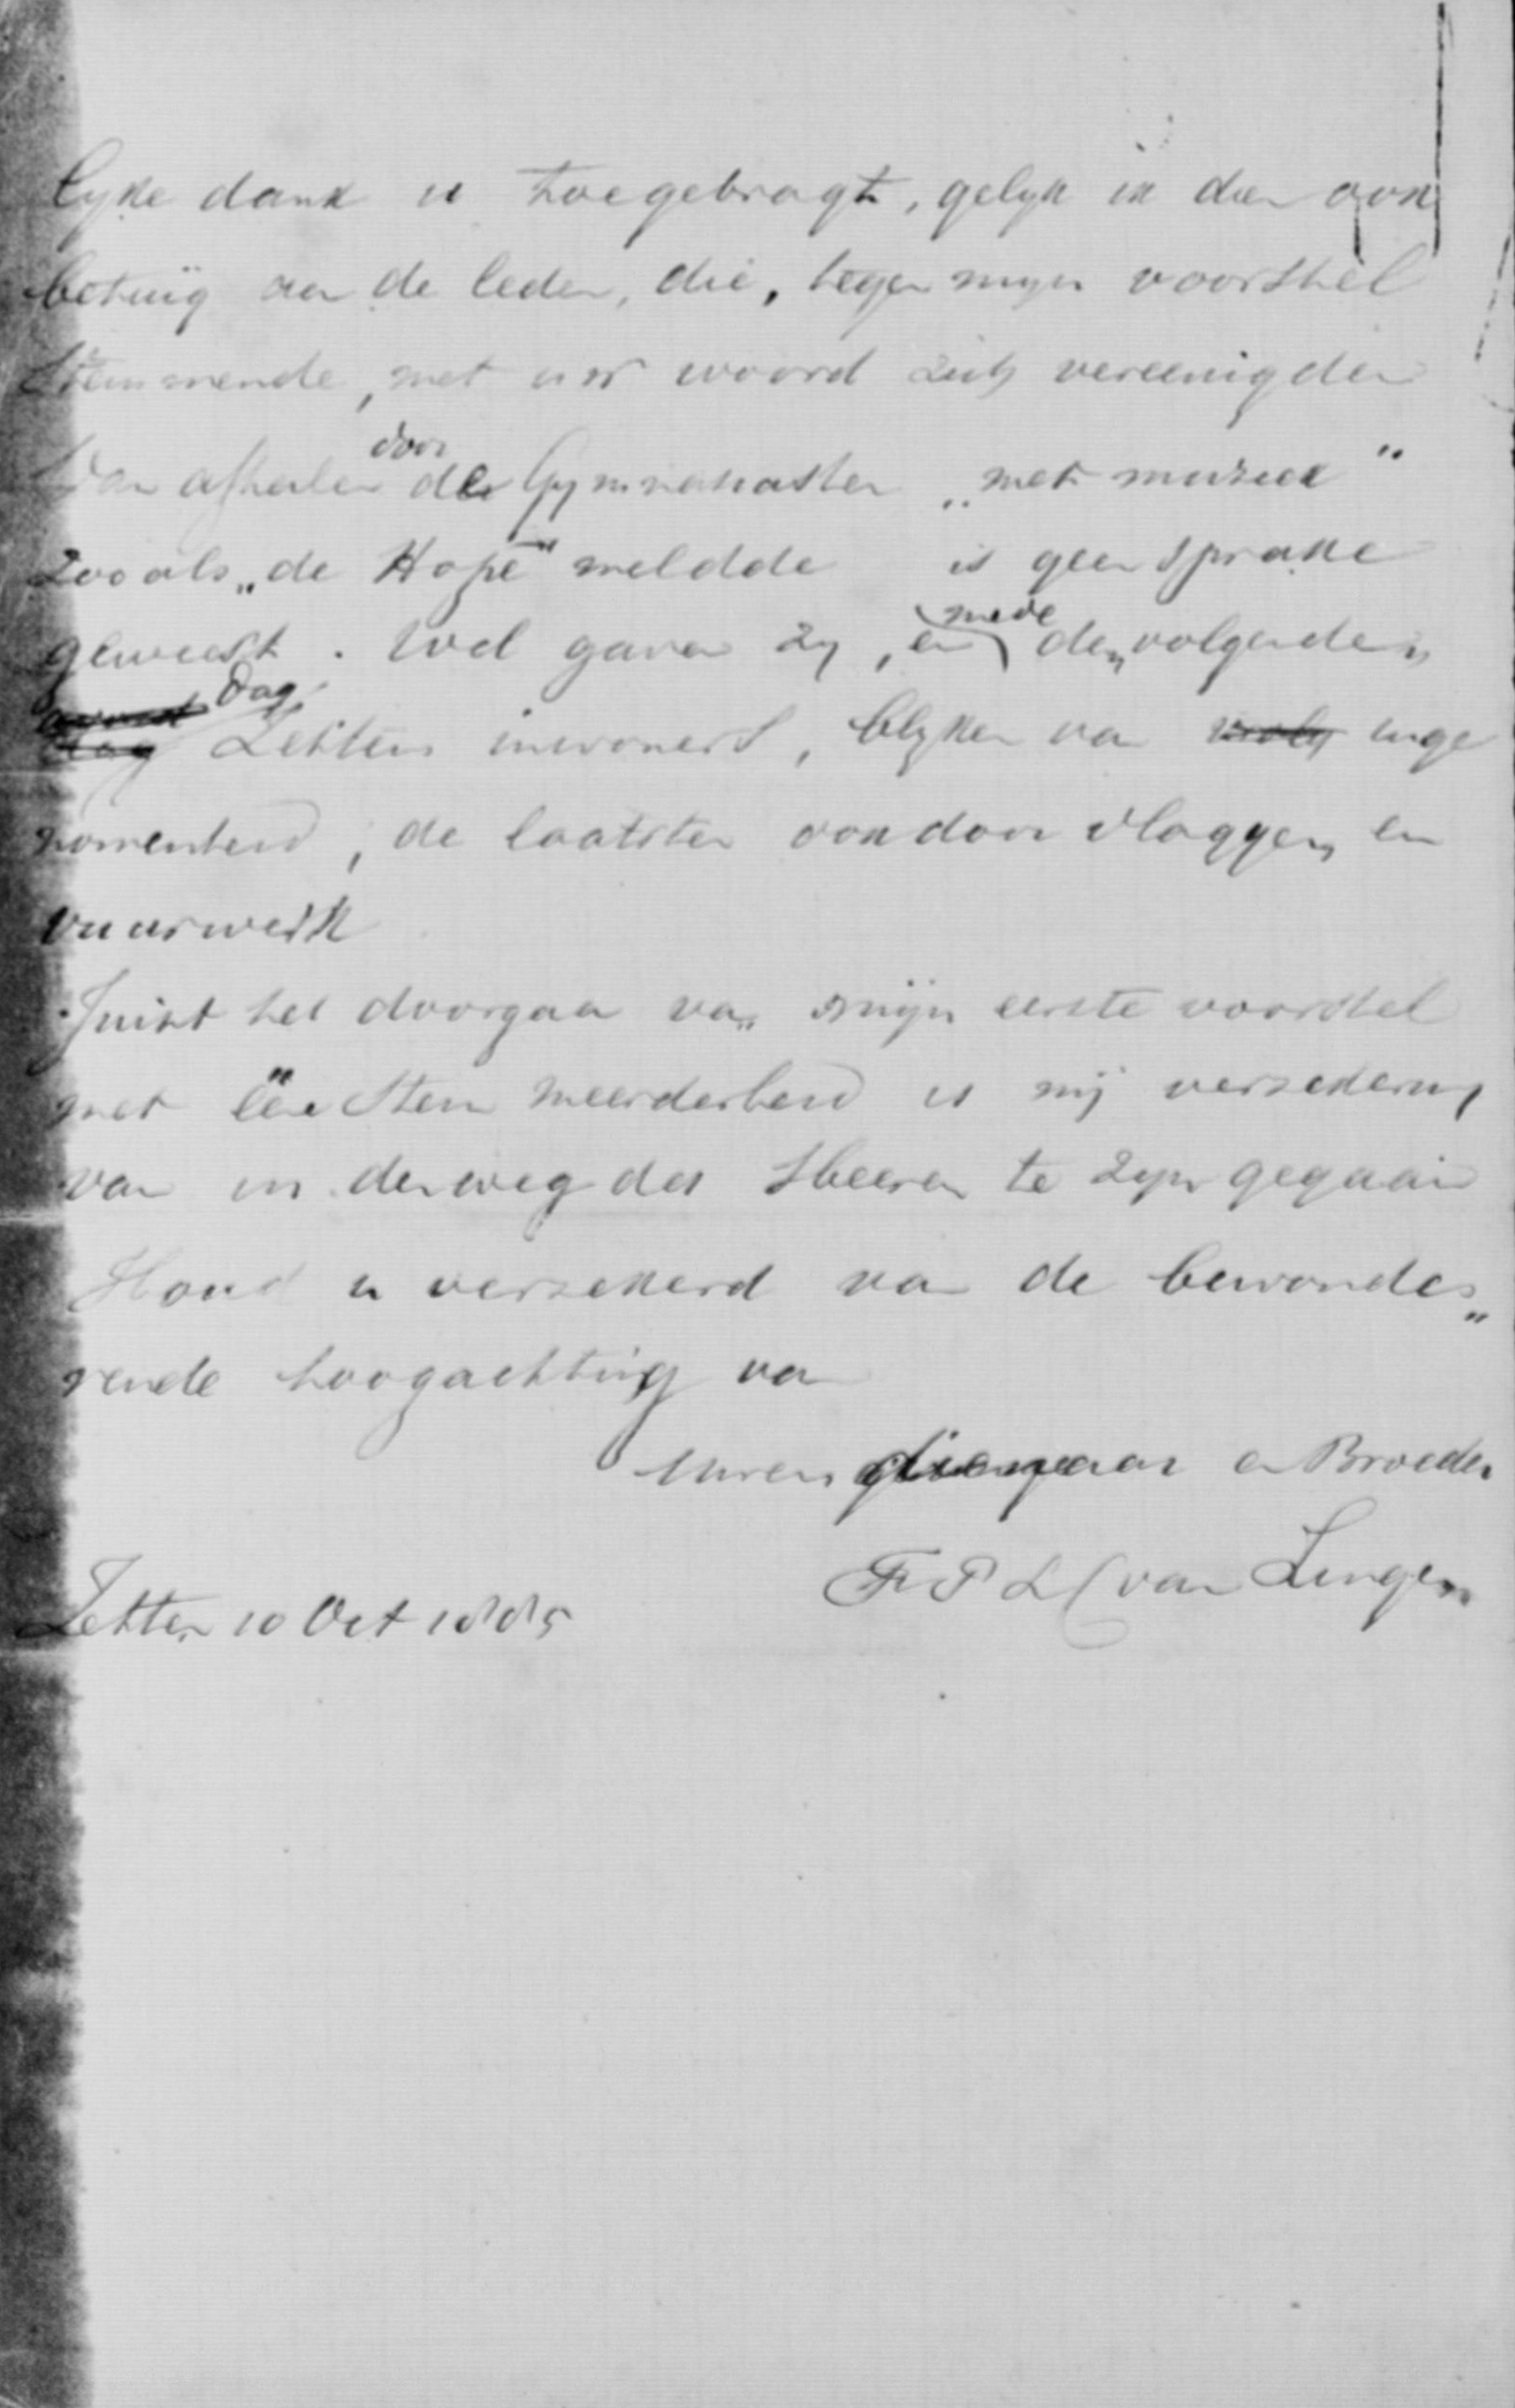 lyke dank u toegebragt, gelyk ik dien ook
betuig aan de leden, die, tegen myn voorstel
stemmende, met uw woord zich vereenigden
Van afhalen door de Gymnasiasten „met muziek"
zooals „de Hope" meldde is geen sprake
geweest. Wel gaven zy, en mede den volgenden
dag avond Dag Zettens inwoners, blyken van inge
nomenheid, de laatsten ook door vlaggen en
vuurwerk
Juist het doorgaan van mijn eerste voorstel
met één stem meerderheid is mij verzekering
van in den weg des Heeren te zyn gegaan
Houd u verzekerd van de bewonde„
rende hoogachting van
Uwen dienaar en Broeder
F P L C van Lingen
Zetten 10 Oct 1885